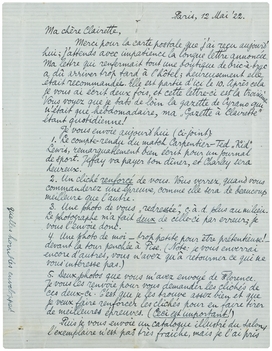 Paris, 12 Mai '22.
Ma chère Clairette,
Merci pour la carte postale que j'ai reçu aujourd'
hui; j'attends avec impatience la longue lettre annoncée.
Ma lettre qui renfermait tout une boutique de bric-à-brac
a dû arriver trop tard à l'hôtel; heureusement elle
était recommandée. Elle est partie d'ici le 10. Après cela
je vous ai écrit deux fois, et cette lettre-ci est la troisième.
Vous voyez que je bats de loin la gazette de Cyrano qui
n'était que hebdomadaire, ma "Gazette à Clairette"
étant quotidienne!
Je vous envoie aujourd'hui (ci-joint)
1. Le compte-rendu du match Carpentier - Ted "Kid"
Lewis, remarquablement bien écrit pour un journal
de sport. Jeffay va payer son dîner, et Clarey sera
heureux.
2. Un cliché renforcé de vous. Vous verrez, quand vous
commanderez une épreuve, comme elle sera de beaucoup
meilleure que l'autre.
3. Une photo de vous, "redressée", c.à.d. plus au milieu.
Le photographe m'a fait deux de celle-ci par erreur, je
vous l'envoie donc.
4. Une photo de moi - trop petite pour être prétentieux!
devant la tour penchée à Pise. (Note: je vous enverrais
encore d'autres, vous n'avez qu'à retourner ce qui ne
vous intéresse pas.)
5. Deux photos que vous m'avez envoyé de Florence.
Je vous les renvoie pour vous demander les clichés de
ces deux-ci. C'est que je les trouve assez bien, et que
je veux faire renforcer les clichés pour en faire tirer
de meilleures épreuves. (Ceci est important!)
Puis je vous envoie un catalogue illustré du salon
L'exemplaire n'est pas très fraîche, mais je l'ai pris